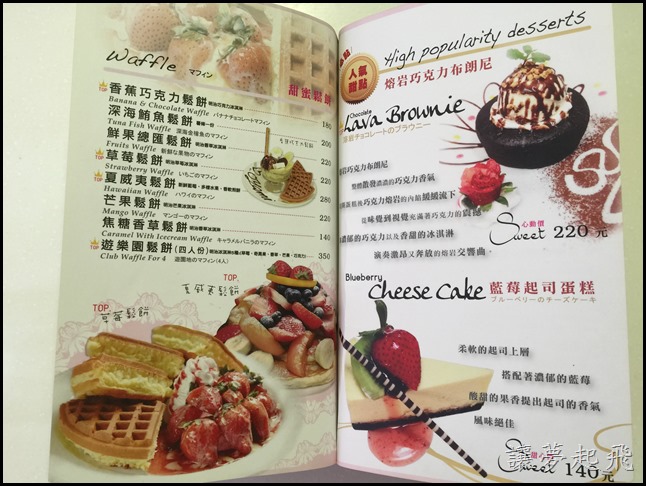 Waffle マフィン
甜蜜鬆餅
TOP 香蕉巧克力鬆餅
Banana & Chocolate Waffle バナナチョコレートマフィン 180
深海鮪魚鬆餅
Tuna Fish Waffle 深海金槍魚のマフィン 200
鮮果總匯鬆餅
Fruits Waffle 新鮮な果物のマフィン 220
TOP 草莓鬆餅
Strawberry Waffle いちごのマフィン 220
TOP 夏威夷鬆餅
Hawaiian Waffle ハワイのマフィン 280
芒果鬆餅
Mango Waffle マンゴーのマフィン 220
焦糖香草鬆餅
Caramel With Icecream Waffle キャラメルバニラのマフィン 140
TOP 遊樂園鬆餅(四人份) 350
Club Waffle For 4 遊園地のマフィン(4人)
TOP.
夏威夷鬆餅
TOP.
草莓鬆餅
High popularity desserts
人氣
甜點
熔岩巧克力布朗尼
Chocolate
Lava Brownie
熔岩チョコレートのブラウニー
熔岩巧克力布朗尼
整體散發濃濃的巧克力香氣
巧克力熔岩的內餡緩緩流下
從味覺到視覺充滿著巧克力的震撼
濃郁的巧克力以及香甜的冰淇淋
演奏激昂又奔放的熔岩交響曲。
心動價
Sweet 220 元
Blueberry
Cheese Cake 藍莓起司蛋糕
ブルーベリーのチーズケーキ
柔軟的起司上層
搭配著濃郁的藍莓
酸甜的果香提出起司的香氣
風味絕佳
Sweet 140 元
讓夢起飛